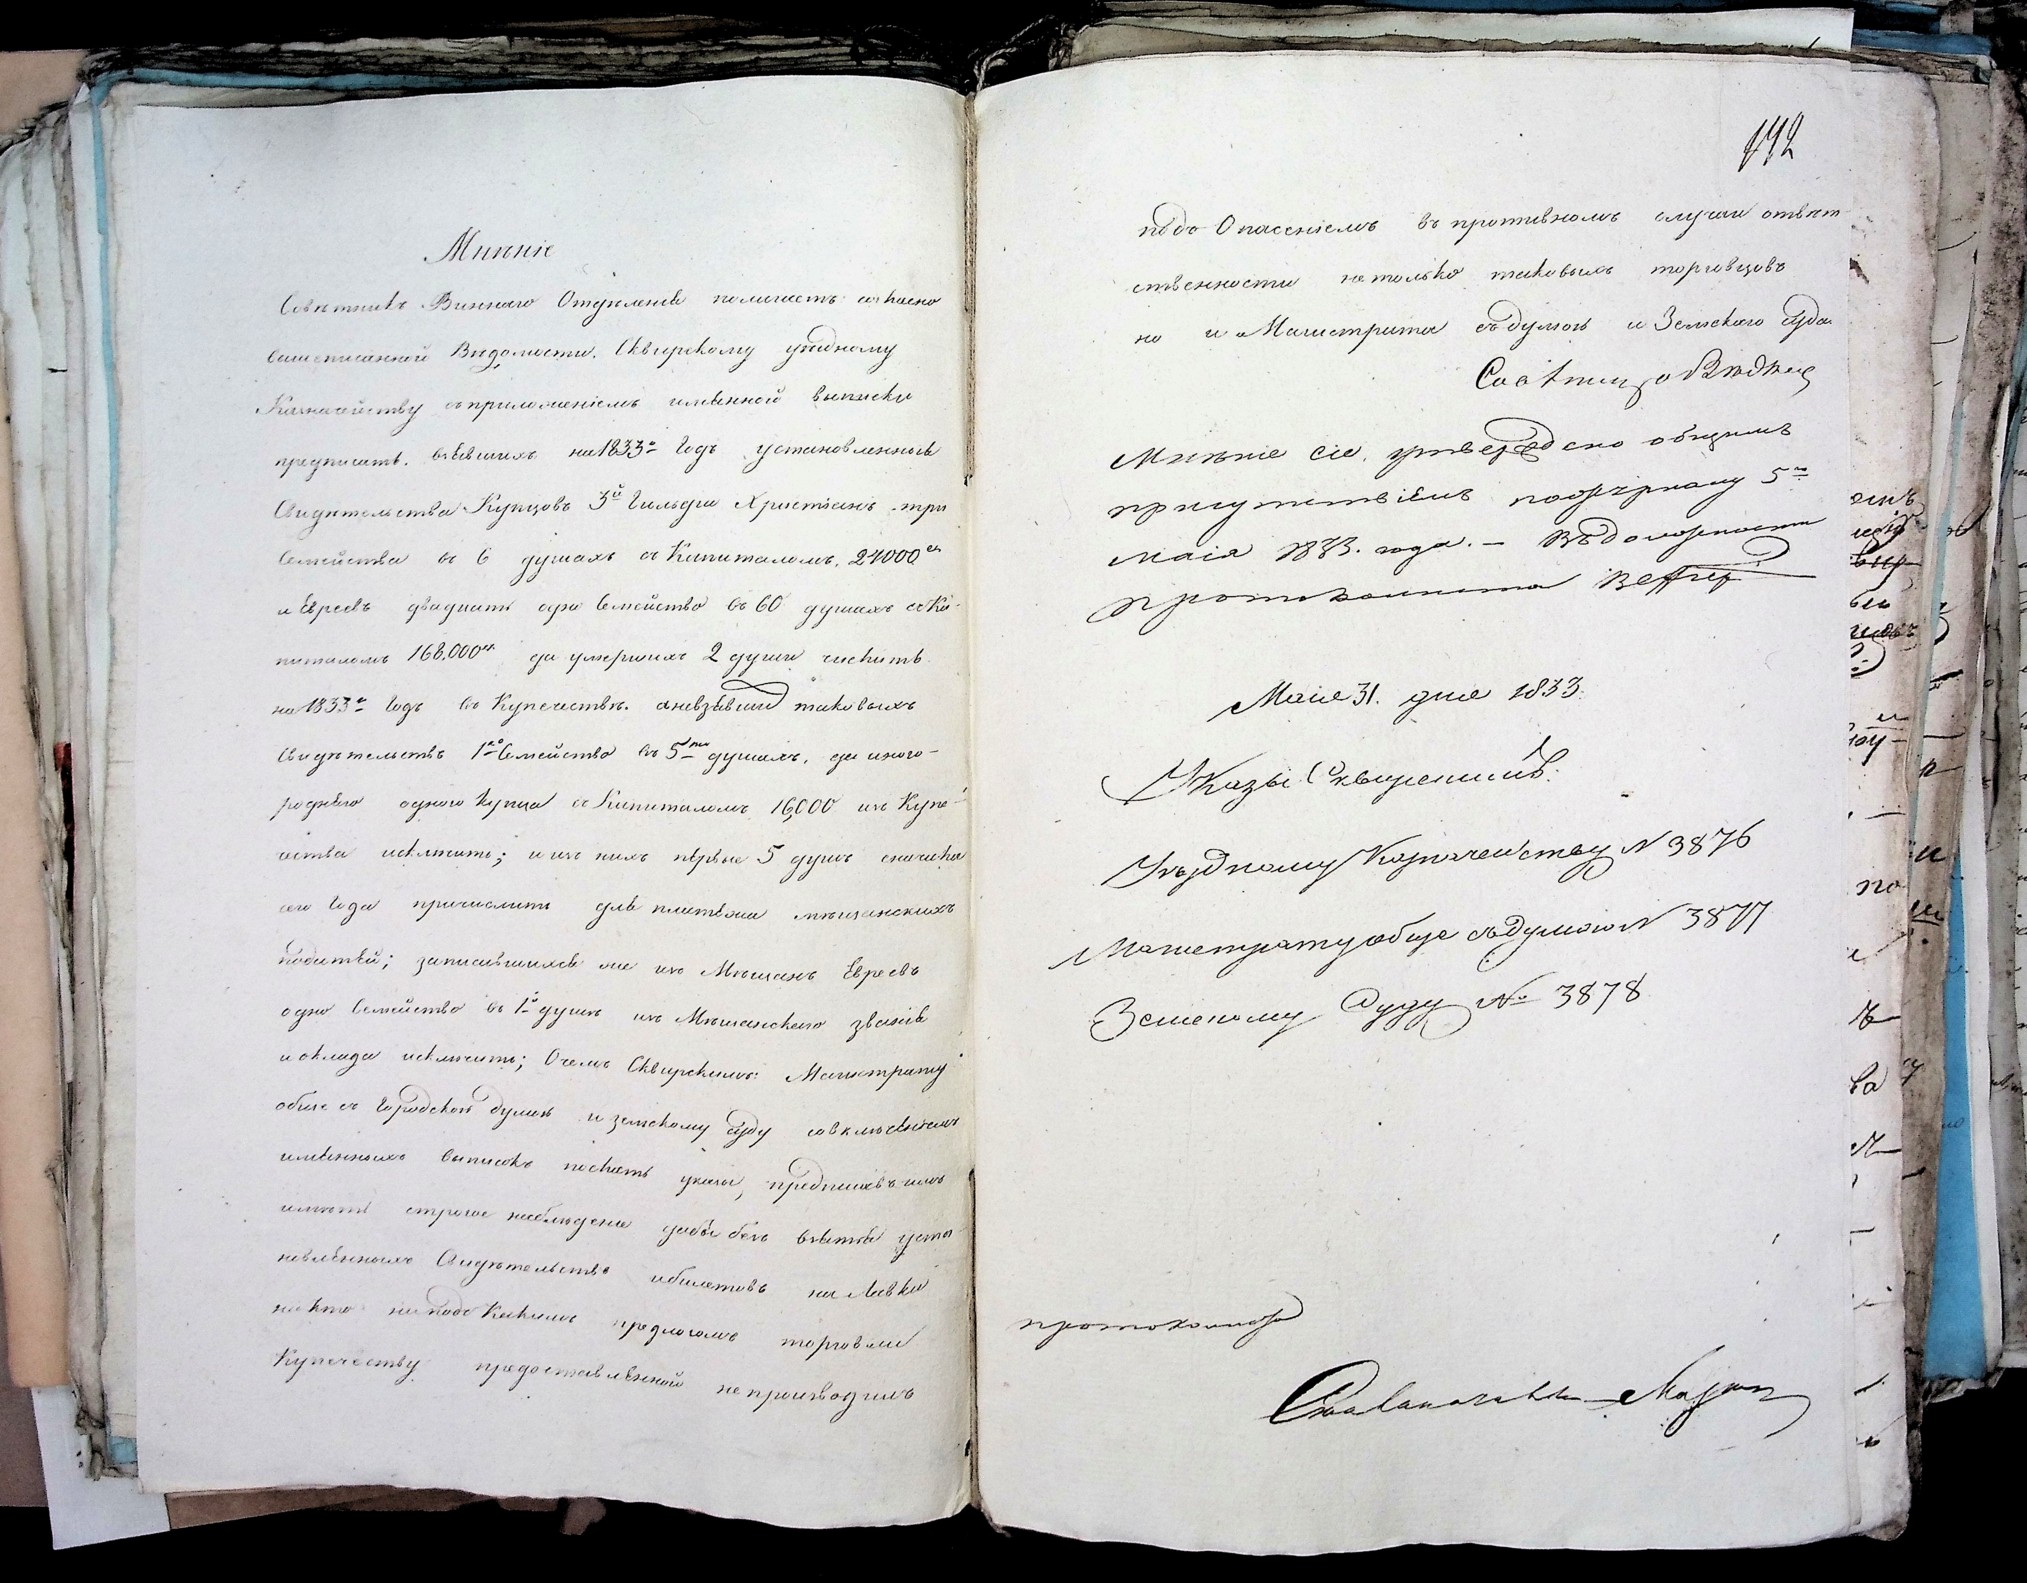 Мнѣніе
Совѣтникъ Виннаго Отдѣленія полагаетъ: согласно
вышеписанной Вѣдомости. Сквирскому уѣздному
Казначейству съ приложеніемъ имянной выписки
предписать. взявшихъ на 1833й Годъ установленныя
Свидѣтельства Купцовъ 3й Гильди Христіанъ три
Семейства въ 6 душахъ съ Капиталомъ. 24000
и Евреевъ двадцать одно Семейство въ 60 душахъ съ Ка-
питаломъ 168.000 да умершихъ 2 души считать
на 1833й Годъ въ Купечествѣ. а невзявшия таковыхъ
Свидѣтельствъ 1но Семейство въ 5ти душахъ, да иного-
роднаго одного Купца съ Капиталомъ 16,000 изъ Купе-
чества исключить; и изъ нихъ первые 5 душъ сначала
сего Года причислить для платежа мѣщанскихъ
податей; записавшихся же изъ Мѣщанъ Евреевъ
одно Семейство въ 1й душѣ изъ Мѣщанскаго званія
и оклада исключить; О чемъ Сквирскимъ: Магистрату
обще съ Городской думой и земскому суду со включеніемъ
имянныхъ выписокъ послать указы, предписавъ имъ
имѣть строгое наблюдение дабы безъ взятья уста
новленныхъ Свидѣтельствъ и билетовъ на Лавки
никто ни подъ Какимъ предлогомъ торговли
Купечеству предоставленной не производилъ
192
подъ Опасеніемъ въ противномъ случаи отвѣт
ственности не только таковыхъ торговцовъ
но и Магистрата съ думой и Земскаго суда
Мнѣніе сіе утверждено общимъ
присутствіемъ 5го
Маія 1833. года. – Въ должности
протоколиста
Маія 31. дня 1833.
Указы Сквирскимъ:
Уѣздному Казначейству N 3876
Магистрату обще съ думою N 3877
Земскому Суду № 3878
протоколистъ